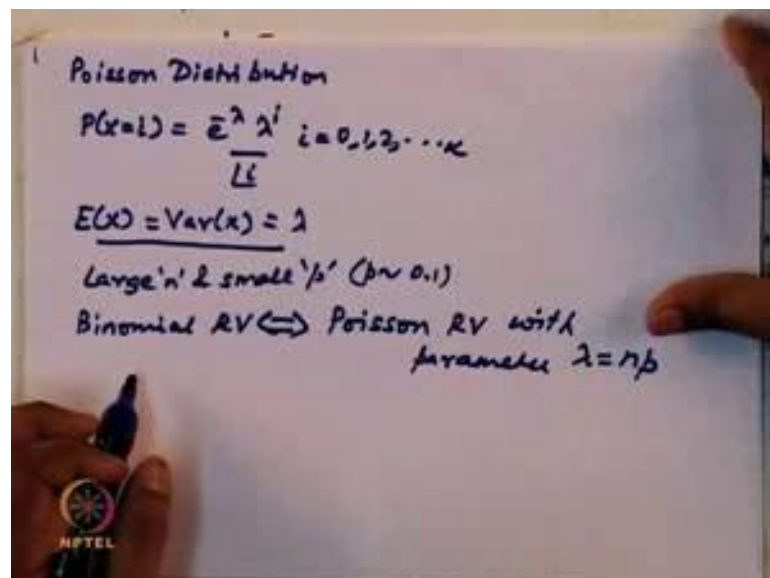 1
Poisson Distribution
P(x=i) = e^-λ λ^i i=0,1,2,...
⌊i
E(x) = Var(x) = λ
Large 'n' & small 'p' (p~0.1)
Binomial RV ⇔ Poisson RV with
parameter λ=np
NPTEL